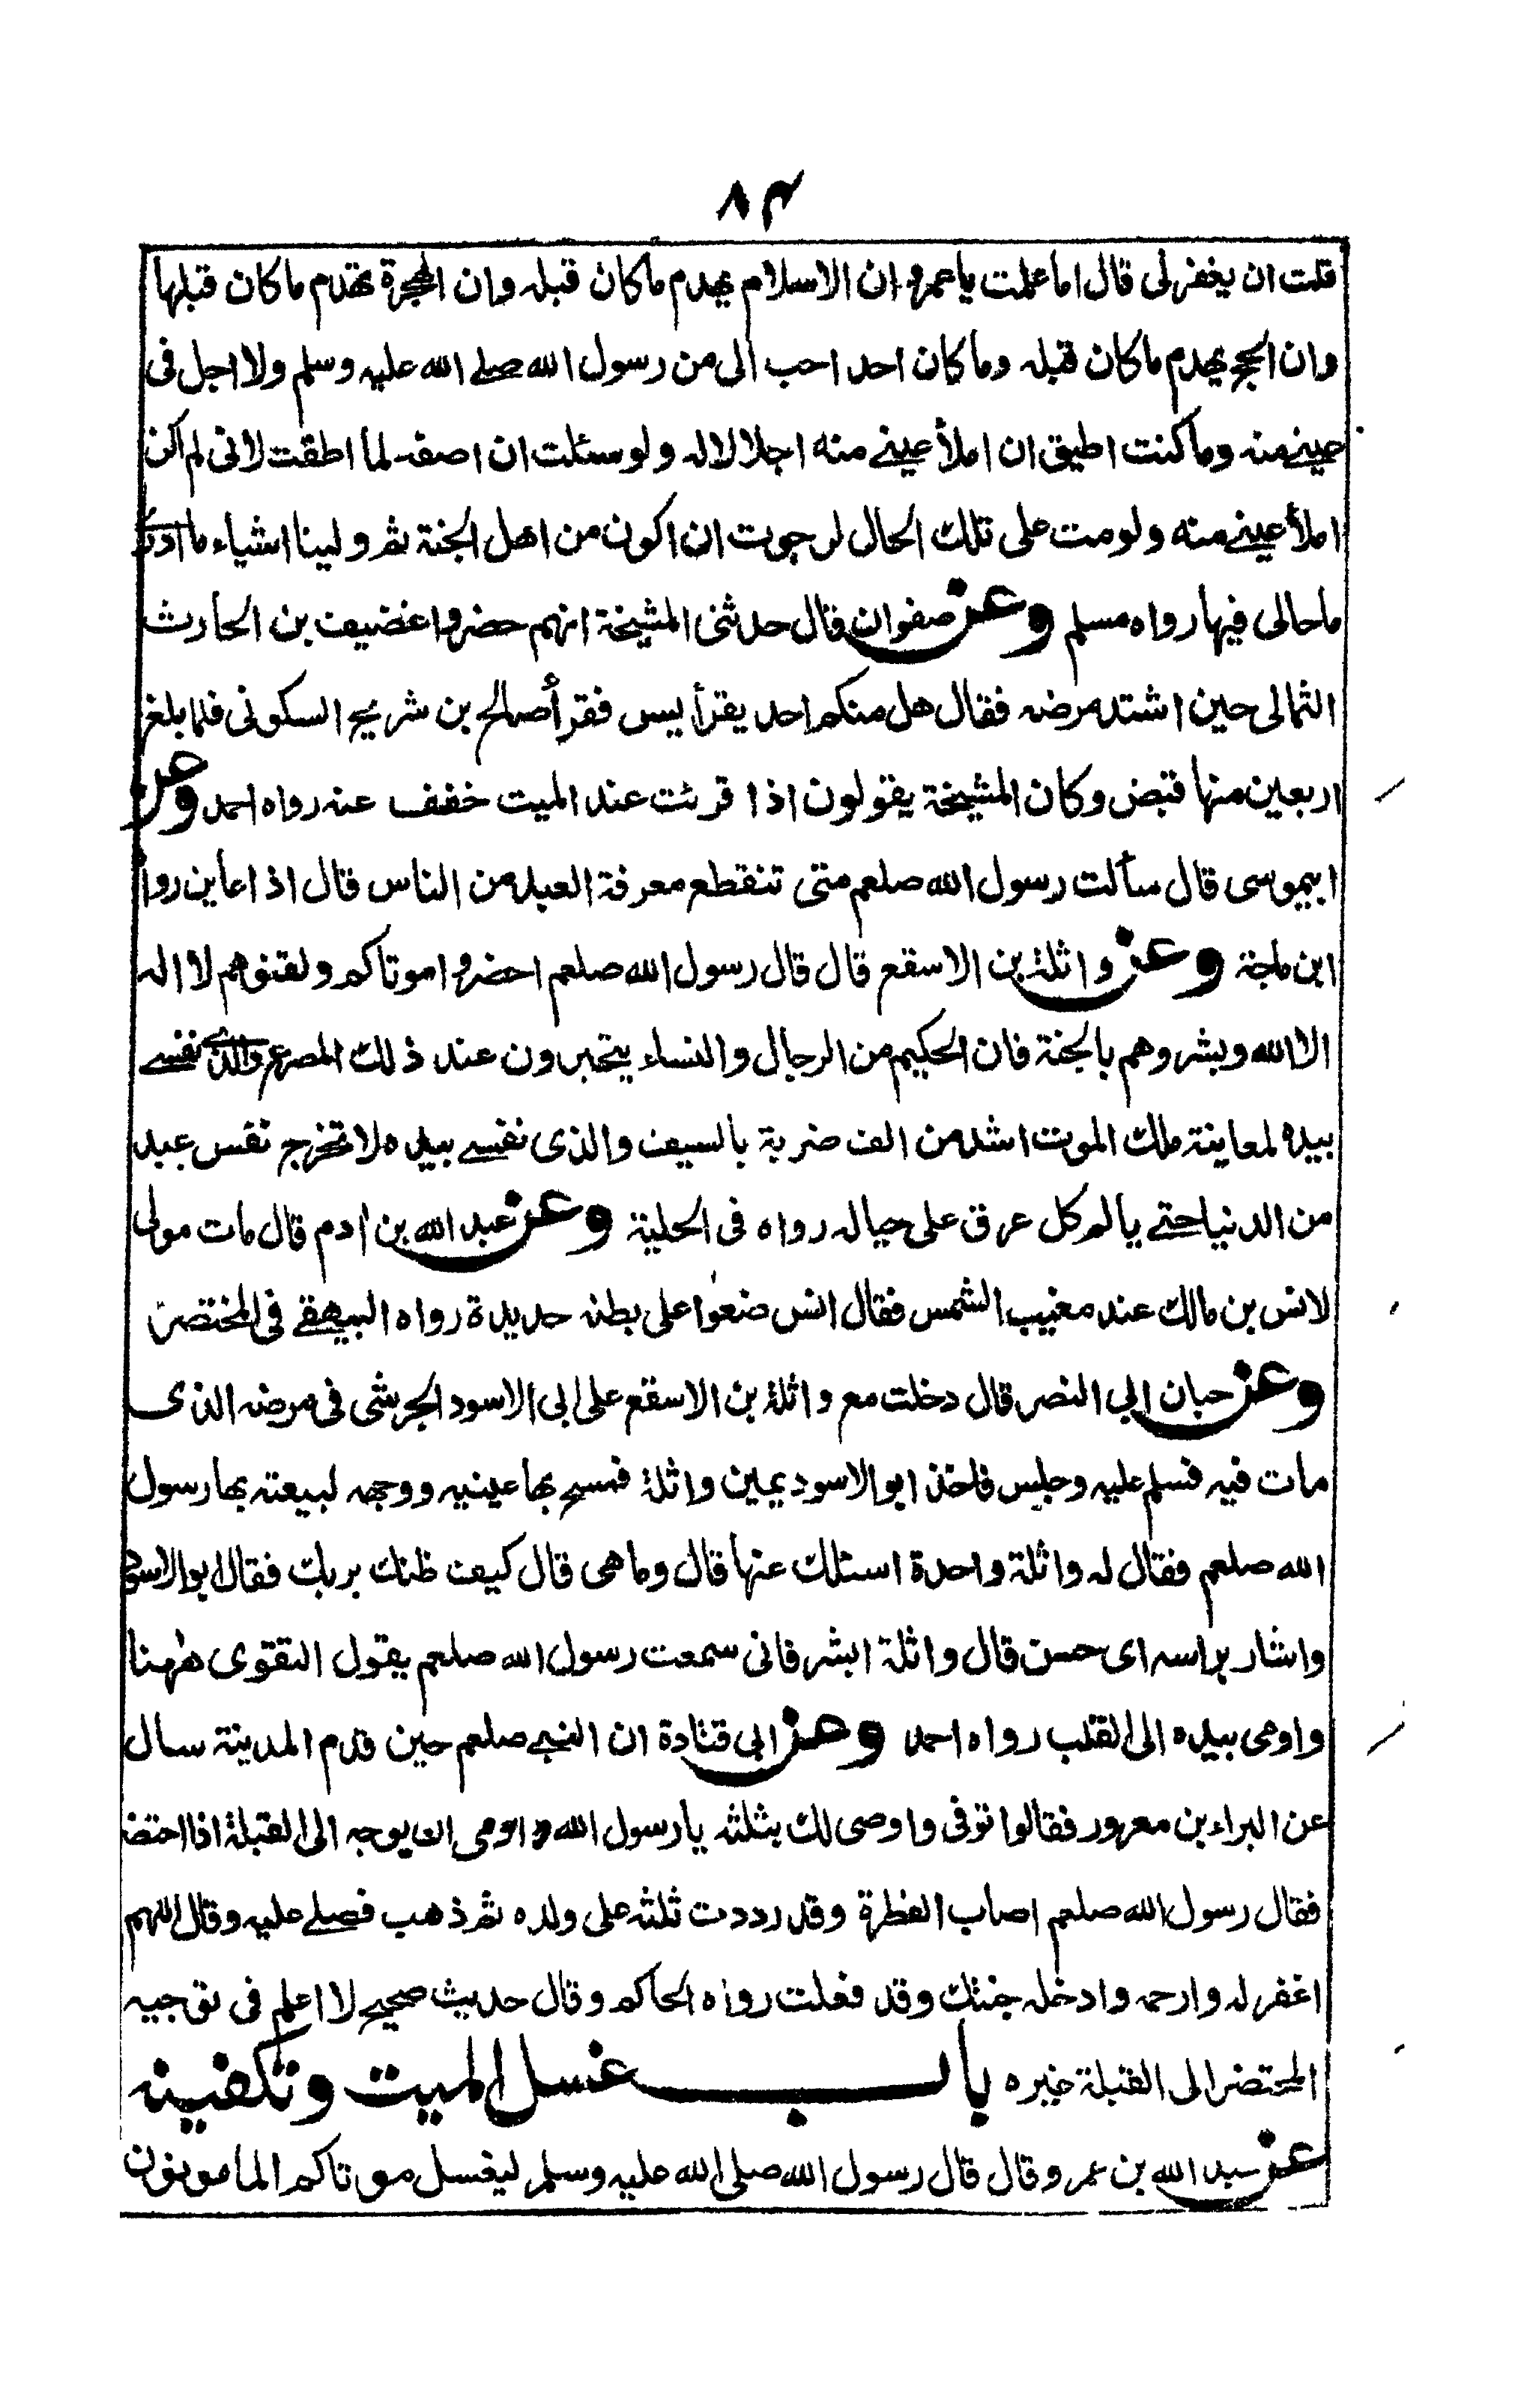 ٨٣
قلت ان يغفر لى قال اما علمت يا عمرو ان الاسلام يهدم ما كان قبله وان الهجرة تهدم ما كان قبلها
وان الحج يهدم ما كان قبله وما كان احد احب الى من رسول الله صلى الله عليه وسلم ولا اجل فى
عينى منه وما كنت اطيق ان املأ عينى منه اجلالا له ولو سئلت ان اصفه لما اطقت لانى لم اكن
املأ عينى منه ولو مت على تلك الحال لرجوت ان اكون من اهل الجنة ثم ولينا اشياء ما ادرى
ما حالى فيها رواه مسلم وعن صفوان قال حدثنى المشيخة انهم حضروا غضيف بن الحارث
الثمالى حين اشتد مرضه فقال هل منكم احد يقرأ يس فقرأ صالح بن شريح السكونى فلما بلغ
اربعين منها قبض وكان المشيخة يقولون اذا قرئت عند الميت خفف عنه رواه احمد وعن
ابيموسى قال سألت رسول الله صلعم متى تنقطع معرفة العبد من الناس قال اذا عاين رواه
ابن ماجة وعن واثلة بن الاسقع قال قال رسول الله صلعم احضروا موتاكم ولقنوهم لا اله
الا الله وبشروهم بالجنة فان الحكيم من الرجال والنساء يتحيرون عند ذلك المصرع والذى نفسى
بيده لمعاينة ملك الموت اشد من الف ضربة بالسيف والذى نفسى بيده لا تخرج نفس عبد
من الدنيا حتى يالم كل عرق على حياله رواه فى الحلية وعن عبد الله بن ادم قال مات مولى
لانس بن مالك عند مغيب الشمس فقال انس ضعوا على بطنه حديدة رواه البيهقى فى المختصر
وعن حبان ابى النصر قال دخلت مع واثلة بن الاسقع على ابى الاسود الجرشى فى مرضه الذى
مات فيه فسلم عليه وجلس فاخذ ابو الاسود يمين واثلة فمسح بها عينيه ووجهه لبيعته بها رسول
الله صلعم فقال له واثلة واحدة اسئلك عنها قال وما هى قال كيف ظنك بربك فقال ابو الاسود
واشار براسه اى حسن قال واثلة ابشر فانى سمعت رسول الله صلعم يقول التقوى ههنا
واومى بيده الى القلب رواه احمد وعن ابى قتادة ان النبى صلعم حين قدم المدينة سال
عن البراء بن معرور فقالوا توفى واوصى لك بثلثه يا رسول الله واومى ان يوجه الى القبلة اذا احتضر
فقال رسول الله صلعم اصاب الفطرة وقد رددت ثلثه على ولده ثم ذهب فصلى عليه وقال اللهم
اغفر له وارحمه وادخله جنتك وقد فعلت رواه الحاكم وقال حديث صحيح لا اعلم فى توجيه
المحتضر الى القبلة غيره باب غسل الميت وتكفينه
عن عبد الله بن عمر وقال قال رسول الله صلى الله عليه وسلم ليغسل موتاكم المامونون